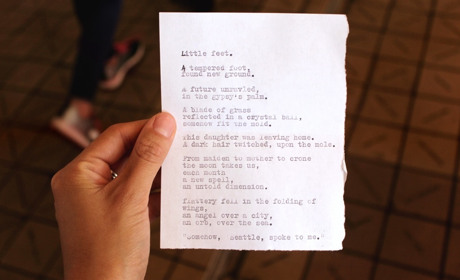 Little feet.
A tempered foot,
found new ground.
a future unravled,
in the gypsy's palm.
A blade of grass
reflected in a crystal ball,
somehow fit the mold.
This daughter was leaving home.
A dark hair twitched, upon the mole.
From maiden to mother to crone
the moon takes us,
each month
a new spell,
an untold dimension.
flattery fell in the folding of
wings,
an angel over a city,
an orb, over the sea.
"Somehow, Seattle, spoke to me."